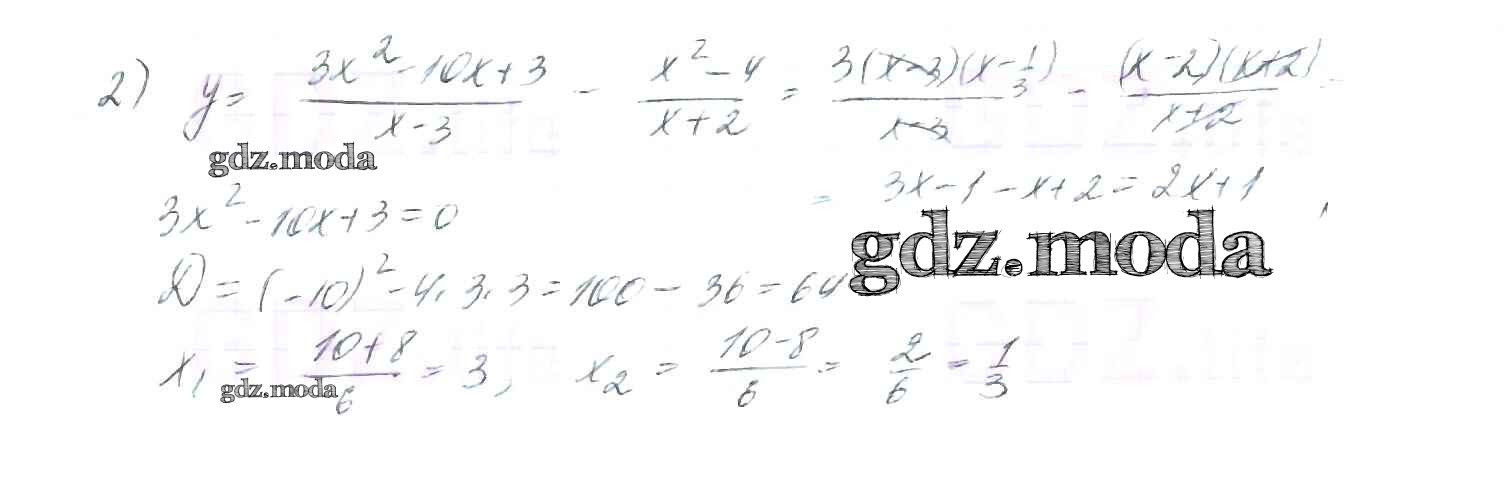 2) y = (3x² - 10x + 3)/(x - 3) - (x² - 4)/(x + 2) = 3(x - 3)(x - 1/3)/(x - 3) - (x - 2)(x + 2)/(x + 2)
gdz.moda
= 3x - 1 - x + 2 = 2x + 1,
3x² - 10x + 3 = 0
gdz.moda
D = (-10)² - 4 · 3 · 3 = 100 - 36 = 64
x₁ = (10 + 8)/6 = 3, x₂ = (10 - 8)/6 = 2/6 = 1/3
gdz.moda